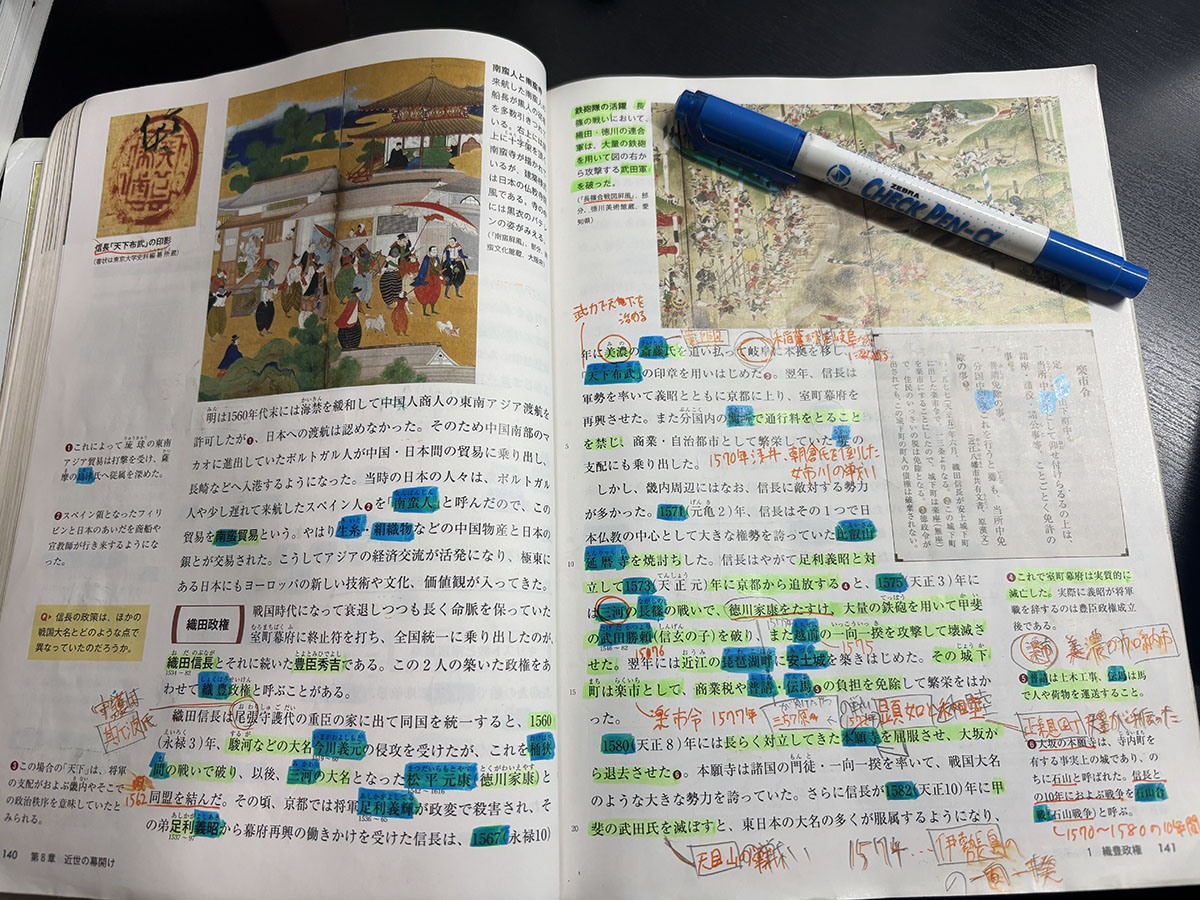 信長「天下布武」の印影
(書状は東京大学史料編纂所蔵)
南蛮人と南蛮寺
来航した南蛮人の
船長が黒人の従者
を多数引きつれて
いる。右上には屋
上に十字架を頂く
南蛮寺が描かれて
いるが、建築様式
は日本の仏教寺院
風である。寺の中
には黒衣のバテレ
ンの姿がみえる。
(「南蛮屛風」、部分、神
蛮文化館蔵、大阪府)
明は1560年代末には海禁を緩和して中国人商人の東南アジア渡航を
許可したが❶、日本への渡航は認めなかった。そのため中国南部のマ
カオに進出していたポルトガル人が中国・日本間の貿易に乗り出し、
長崎などへ入港するようになった。当時の日本の人々は、ポルトガル
人や少し遅れて来航したスペイン人❷を「南蛮人」と呼んだので、この
貿易を南蛮貿易という。やはり生糸・絹織物などの中国物産と日本の
銀とが交易された。こうしてアジアの経済交流が活発になり、極東に
ある日本にもヨーロッパの新しい技術や文化、価値観が入ってきた。
❶これによって琉球の東南
アジア貿易は打撃を受け、薩
摩の島津氏へ従属を深めた。
❷スペイン領となったフィリ
ピンと日本のあいだを商船や
宣教師が行き来するようにな
った。
Q▶ 信長の政策は、ほかの
戦国大名とどのような点で
異なっていたのだろうか。
織田政権
戦国時代になって衰退しつつも長く命脈を保っていた
室町幕府に終止符を打ち、全国統一に乗り出したのが、
織田信長とそれに続いた豊臣秀吉である。この2人の築いた政権をあ
わせて織豊政権と呼ぶことがある。
織田信長は尾張守護代の重臣の家に出て同国を統一すると、1560
(永禄3)年、駿河などの大名今川義元の侵攻を受けたが、これを桶狭
間の戦いで破り、以後、三河の大名となった松平元康(徳川家康)と
同盟を結んだ。その頃、京都では将軍足利義輝が政変で殺害され、そ
の弟足利義昭から幕府再興の働きかけを受けた信長は、1567(永禄10)
❸この場合の「天下」は、将軍
の支配がおよぶ畿内やそこで
の政治秩序を意味していたと
みられる。
1562
140 第8章 近世の幕開け
鉄砲隊の活躍 長
篠の戦いにおいて、
織田・徳川の連合
軍は、大量の鉄砲
を用いて図の右か
ら攻撃する武田軍
を破った。
(「長篠合戦図屛風」、部
分、徳川美術館蔵、愛
知県)
ZEBRA
CHECK PEN-α
武力で天下を
治める
年に美濃の斎藤氏を追い払って岐阜に本拠を移し、
「天下布武」の印章を用いはじめた❸。翌年、信長は
軍勢を率いて義昭とともに京都に上り、室町幕府を
再興させた。また分国内の関所で通行料をとること
を禁じ、商業・自治都市として繁栄していた堺の
支配にも乗り出した。
1570年浅井・朝倉氏を倒した
姉川の戦い
しかし、畿内周辺にはなお、信長に敵対する勢力
が多かった。1571(元亀2)年、信長はその1つで日
本仏教の中心として大きな権勢を誇っていた比叡山
延暦寺を焼討ちした。信長はやがて足利義昭と対
立して1573(天正元)年に京都から追放する❹と、1575(天正3)年に
は三河の長篠の戦いで、徳川家康をたすけ、大量の鉄砲を用いて甲斐
の武田勝頼(信玄の子)を破り、また越前の一向一揆を攻撃して壊滅さ
せた。翌年には近江の琵琶湖畔に安土城を築きはじめた。その城下
町は楽市として、商業税や普請・伝馬❺の負担を免除して繁栄をはか
った。
楽市令 1577年
顕如と和睦
1580(天正8)年には長らく対立してきた本願寺を屈服させ、大坂か
ら退去させた❻。本願寺は諸国の門徒・一向一揆を率いて、戦国大名
のような大きな勢力を誇っていた。さらに信長が1582(天正10)年に甲
斐の武田氏を滅ぼすと、東日本の大名の多くが服属するようになり、
天目山の戦い
1574 伊勢長島の
の一向一揆
1576
1575
楽市令
❹これで室町幕府は実質的に
滅亡した。実際に義昭が将軍
職を辞するのは豊臣政権成立
後である。
楽市 美濃の加納市
❺普請は土木工事、伝馬は馬
で人や荷物を運送すること。
❻大坂の本願寺は、寺内町を
有する事実上の城であり、の
ちに石山と呼ばれた。信長と
の10年におよぶ戦争を石山合
戦(石山戦争)と呼ぶ。
1570〜1580の10年間
1 織豊政権 141